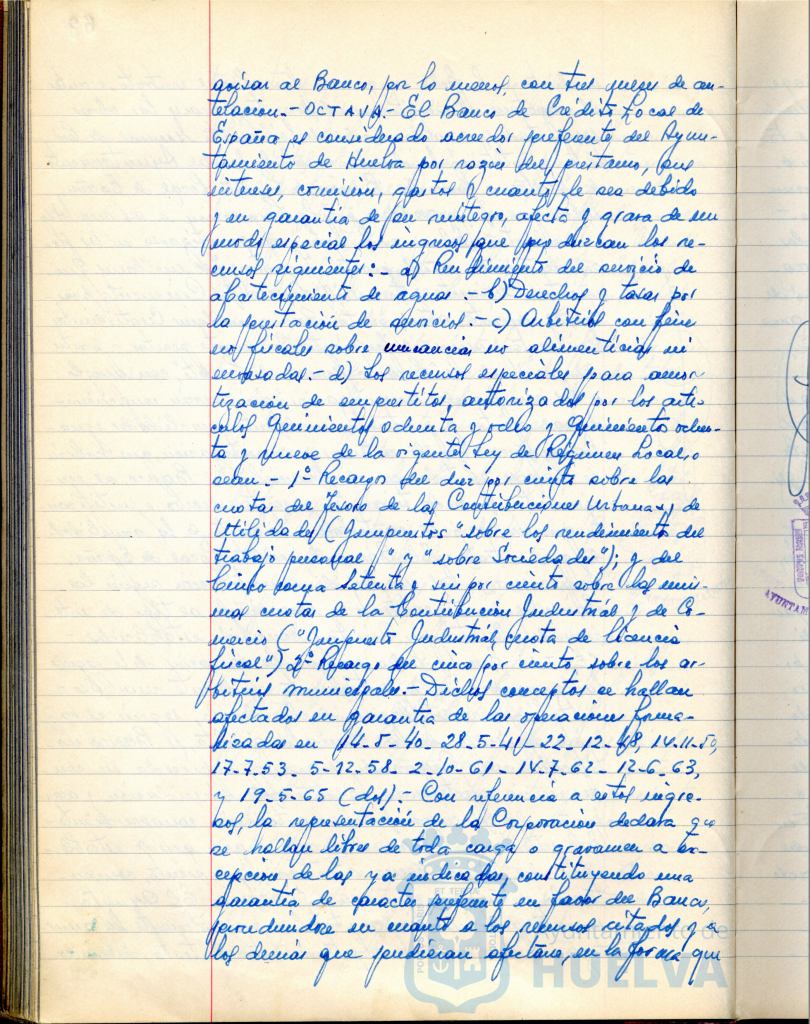 avisar al Banco, por lo menos, con tres meses de an-
telación.- OCTAVA.- El Banco de Crédito Local de
España es considerado acreedor preferente del Ayun-
tamiento de Huelva por razón del préstamo, sus
intereses, comisión, gastos y cuanto le sea debido
y en garantía de su reintegro, afecta y grava de un
modo especial los ingresos que produzcan los re-
cursos siguientes:- a) Rendimiento del servicio de
abastecimiento de aguas.- b) Derechos y tasas por
la prestación de servicios.- c) Arbitrios con fines
no fiscales sobre mercancías no alimenticias ni
envasadas.- d) Los recursos especiales para amor-
tización de empréstitos, autorizados por los artí-
culos Quinientos ochenta y ocho y Quinientos ochen-
ta y nueve de la vigente Ley de Régimen Local, o
sean.- 1º Recargos del diez por ciento sobre las
cuotas del Tesoro de las Contribuciones Urbana y de
Utilidades (Impuestos "sobre los rendimientos del
trabajo personal" y "sobre Sociedades"); y del
Cinco coma Setenta y seis por ciento sobre las mis-
mas cuotas de la Contribución Industrial y de Co-
mercio ("Impuesto Industrial, cuota de licencia
fiscal") 2º Recargo del cinco por ciento sobre los ar-
bitrios municipales.- Dichos conceptos se hallan
afectados en garantía de las operaciones forma-
lizadas en 14-5-40- 28-5-41- 22-12-48, 14-11-50,
17-7-53- 5-12-58- 2-10-61- 14-7-62- 12-6-63,
y 19-5-65 (dos).- Con referencia a estos ingre-
sos, la representación de la Corporación declara que
se hallan libres de toda carga o gravamen a ex-
cepción de las ya indicadas, constituyendo una
garantía de carácter preferente en favor del Banco,
procediéndose en cuanto a los recursos citados y a
los demás que pudieran afectarse, en la forma que
Ayuntamiento de
HUELVA